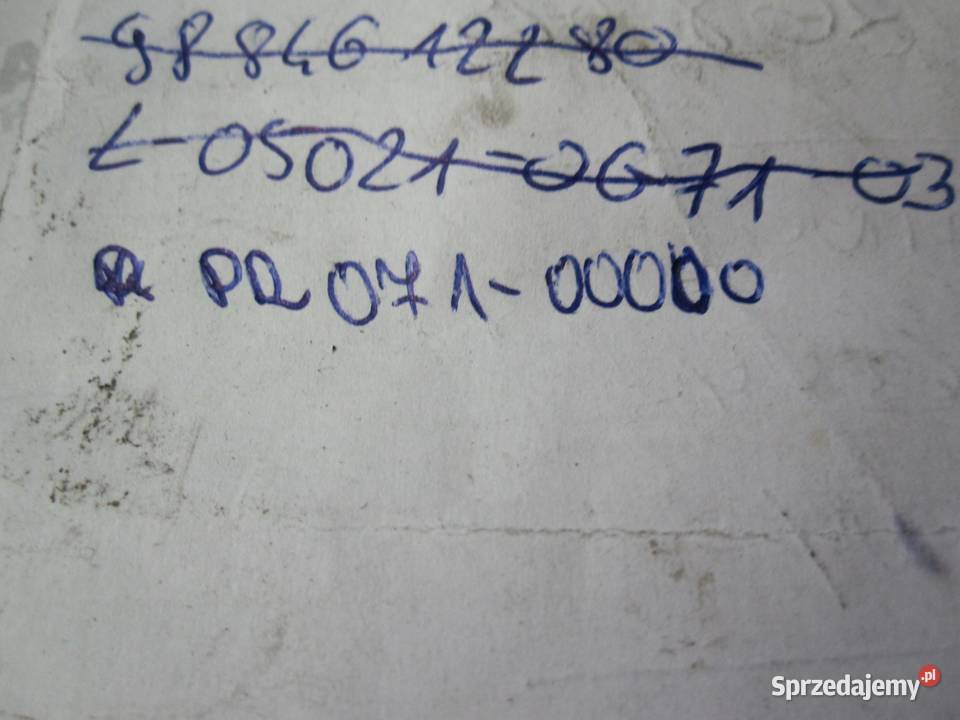 9884612280
L-05021-0671-03
PR 071-00000
Sprzedajemy.pl